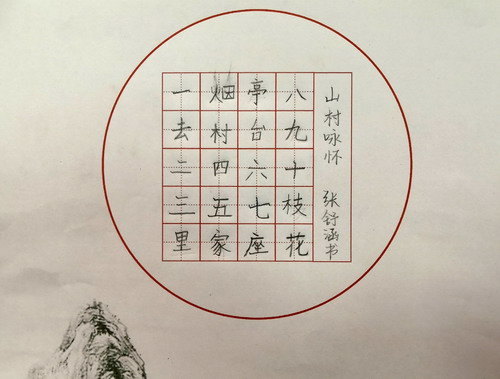 一去二三里
烟村四五家
亭台六七座
八九十枝花
山村咏怀 张舒涵书